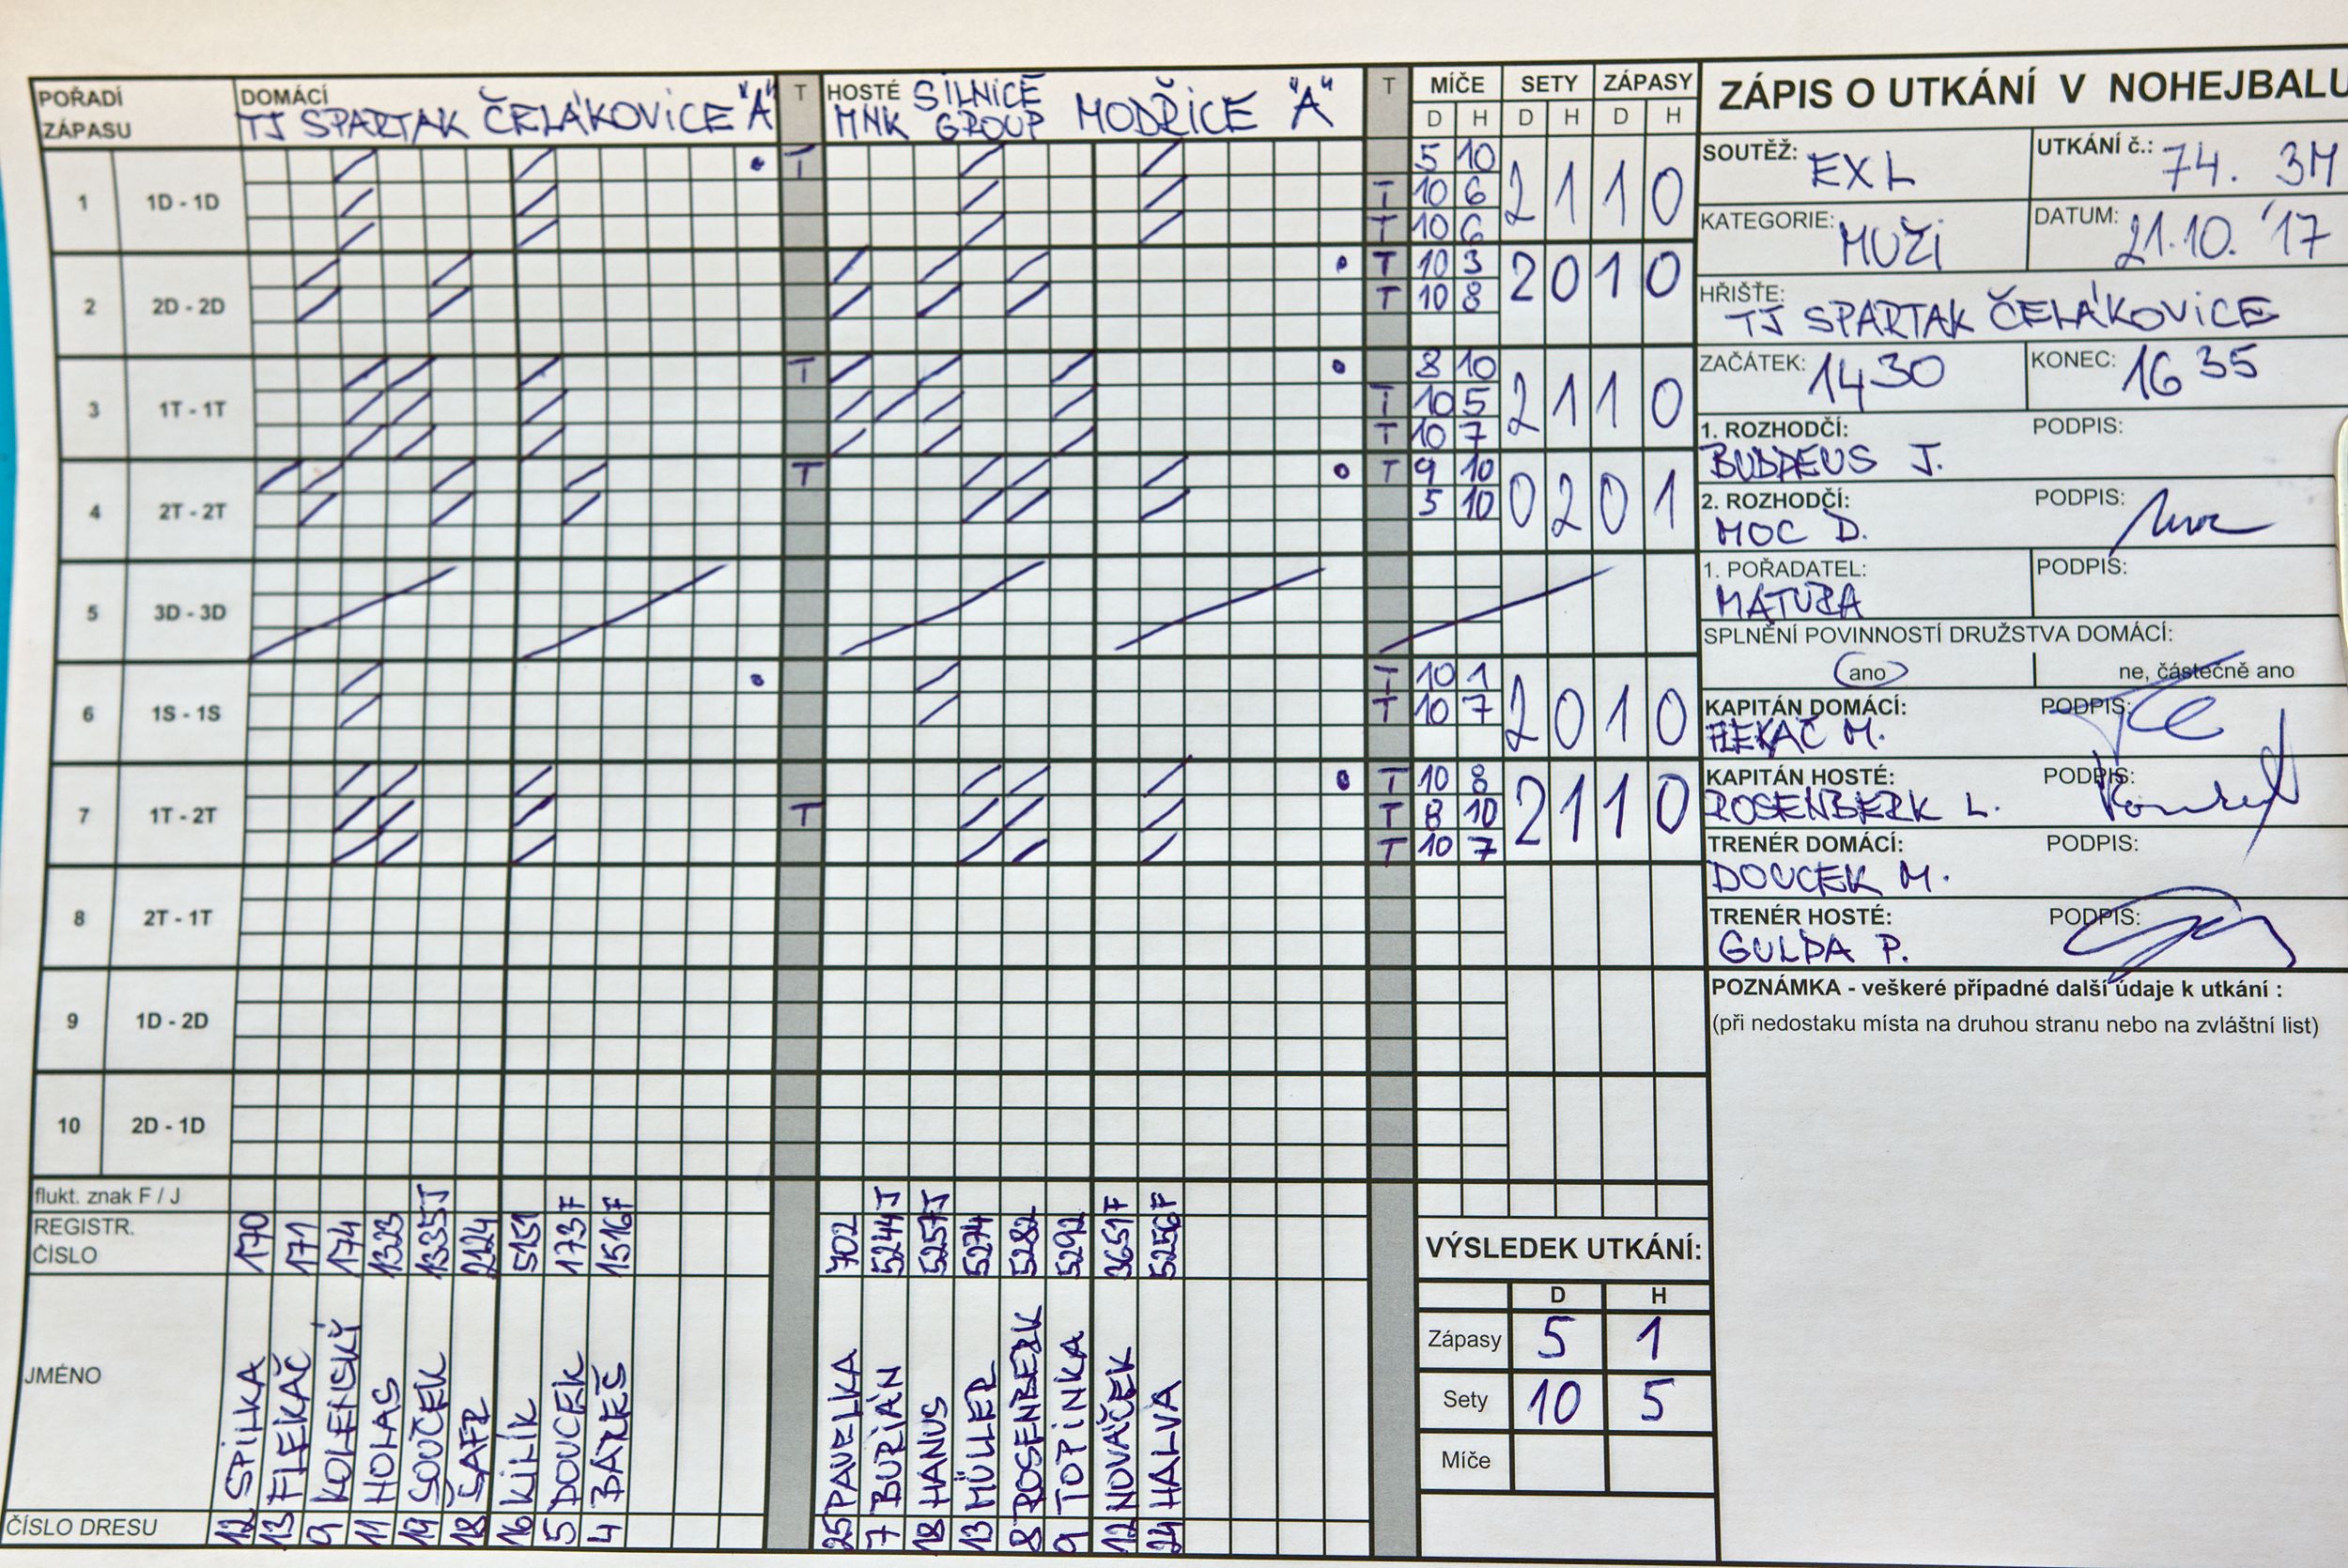 POŘADÍ ZÁPASU
DOMÁCÍ TJ SPARTAK ČELÁKOVICE "A"
T
HOSTÉ MNK SILNICE GROUP MODŘICE "A"
T
MÍČE SETY ZÁPASY
D H D H D H
1 1D - 1D T 5 10 2 1 1 0
T 10 6
T 10 6
2 2D - 2D T 10 3 2 0 1 0
T 10 8
3 1T - 1T T 8 10 2 1 1 0
T 10 5
T 10 7
4 2T - 2T T T 9 10 0 2 0 1
5 10
5 3D - 3D
6 1S - 1S T 10 1 2 0 1 0
T 10 7
7 1T - 2T T 10 8 2 1 1 0
T T 8 10
T 10 7
8 2T - 1T
9 1D - 2D
10 2D - 1D
flukt. znak F / J
REGISTR. ČÍSLO
170 171 174 1323 1335J 2124 5151 173F 1516F
702 5244J 5257J 5274 5282 5292 3651F 5256F
JMÉNO
SPILKA FLEKAČ KOLENSKÝ HOLAS SOUČEK ŠAFR KILÍK DOUCEK BAREŠ
PAVELKA BURIÁN HANUS MÜLLER ROSENBERK TOPINKA NOVÁČEK HALVA
ČÍSLO DRESU
12 13 9 11 19 18 16 5 4
25 7 18 13 8 9 12 24
ZÁPIS O UTKÁNÍ V NOHEJBALU
SOUTĚŽ: EXL
UTKÁNÍ č.: 74. 3M
KATEGORIE: MUŽI
DATUM: 21.10. '17
HŘIŠTE: TJ SPARTAK ČELÁKOVICE
ZAČÁTEK: 14 30
KONEC: 16 35
1. ROZHODČÍ: PODPIS:
BUDDEUS J.
2. ROZHODČÍ: PODPIS:
MOC D.
1. POŘADATEL: PODPIS:
MATURA
SPLNĚNÍ POVINNOSTÍ DRUŽSTVA DOMÁCÍ:
ano ne, částečně ano
KAPITÁN DOMÁCÍ: PODPIS:
FLEKAČ M.
KAPITÁN HOSTÉ: PODPIS:
ROSENBERK L.
TRENÉR DOMÁCÍ: PODPIS:
DOUCEK M.
TRENÉR HOSTÉ: PODPIS:
GULDA P.
POZNÁMKA - veškeré případné další údaje k utkání :
(při nedostaku místa na druhou stranu nebo na zvláštní list)
VÝSLEDEK UTKÁNÍ:
D H
Zápasy 5 1
Sety 10 5
Míče